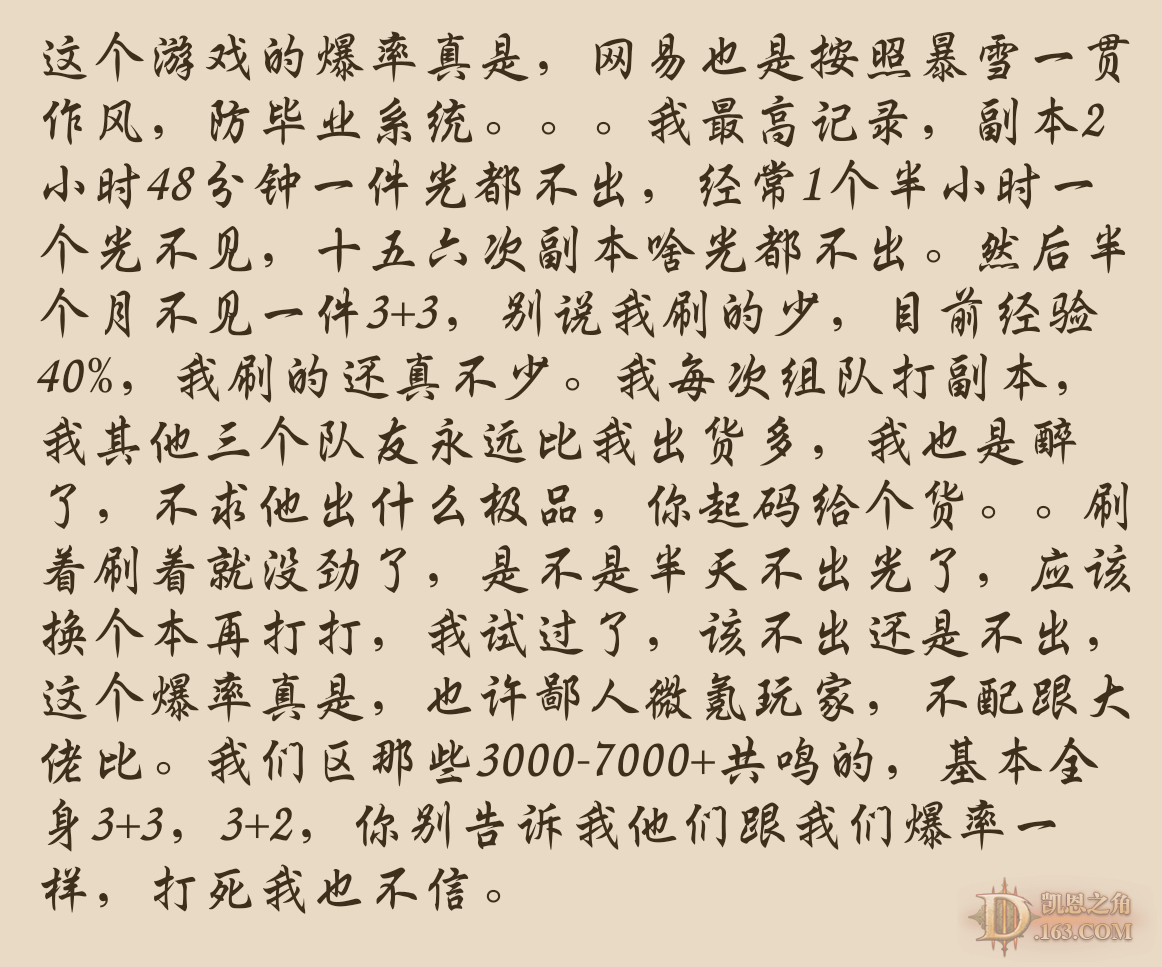 这个游戏的爆率真是，网易也是按照暴雪一贯
作风，防毕业系统。。。我最高记录，副本2
小时48分钟一件光都不出，经常1个半小时一
个光不见，十五六次副本啥光都不出。然后半
个月不见一件3+3，别说我刷的少，目前经验
40%，我刷的还真不少。我每次组队打副本，
我其他三个队友永远比我出货多，我也是醉
了，不求他出什么极品，你起码给个货。。刷
着刷着就没劲了，是不是半天不出光了，应该
换个本再打打，我试过了，该不出还是不出，
这个爆率真是，也许鄙人微氪玩家，不配跟大
佬比。我们区那些3000-7000+共鸣的，基本全
身3+3，3+2，你别告诉我他们跟我们爆率一
样，打死我也不信。
凯恩之角
D.163.COM